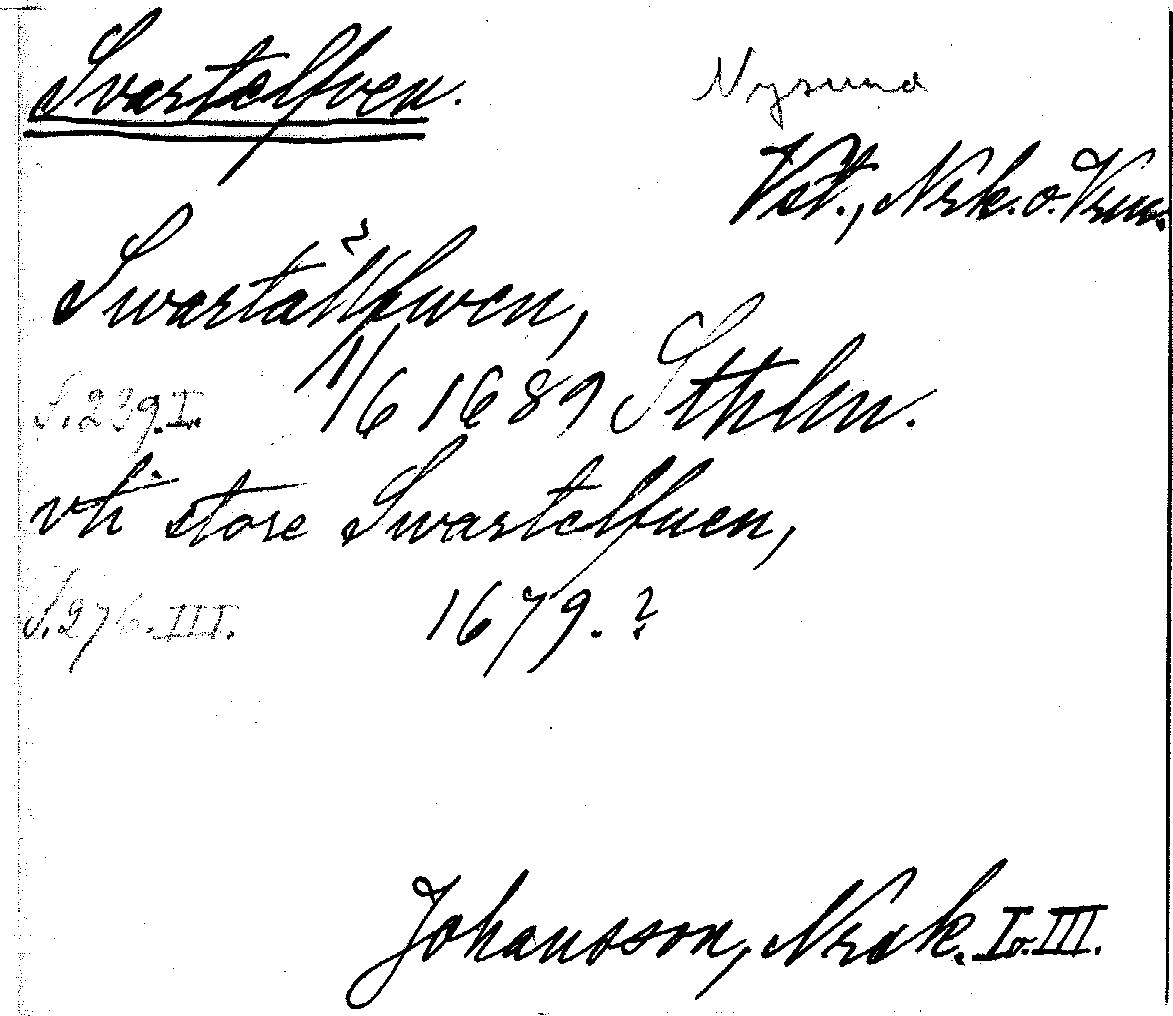 Svartelfven.
Nysund
Vst., Nrk. o. Vrm.
Swartälfwen,
S. 239. I. 1/6 1689 Sthlm.
vti store Swartelfuen,
S. 276. III. 1679. ?
Johansson, Norak. I o. III.